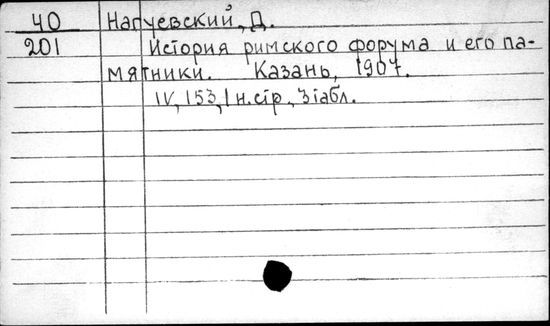 40 Нагуевский, Д.
201 История римского форума и его па-
мятники. Казань, 1907.
IV, 153, 1 н.стр., 3 табл.